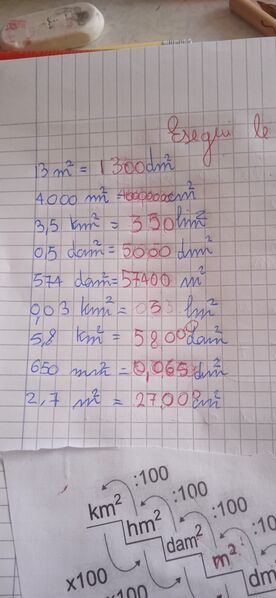 Esegui le
13 m² = 1300 dm²
4000 m² = 40000000 cm²
3,5 km² = 350 hm²
0,5 dam² = 5000 dm²
574 dam² = 57400 m²
0,03 km² = 3 hm²
5,8 km² = 58000 dam²
650 mm² = 0,065 dm²
2,7 m² = 27.000 cm²
:100
km² :100
hm² :100
dam² :100
m²
dm
x100
x100